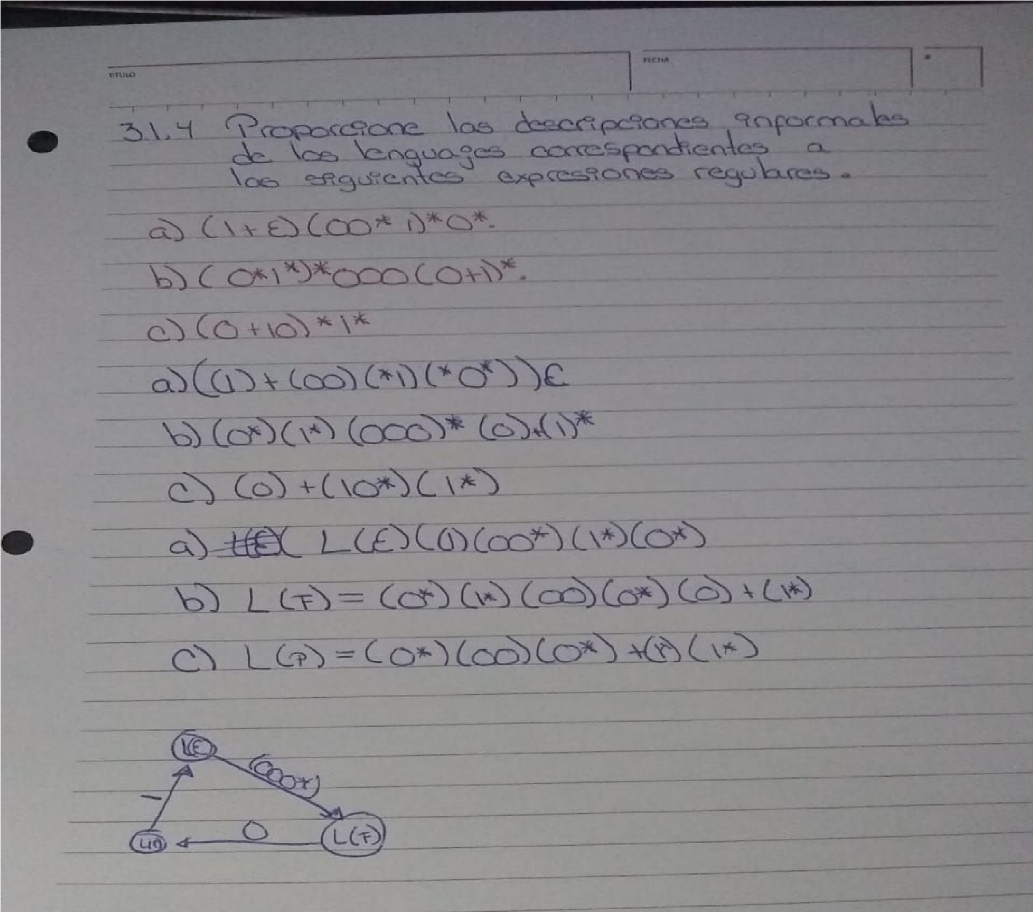 TITULO
FECHA
3.1.4 Proporcione las descripciones informales
de los lenguajes correspondientes a
las siguientes expresiones regulares.
a) (1+ε)(00*1)*0*.
b) (0*1*)*000(0+1)*.
c) (0+10)*1*
a) ((1)+(00)(*1)(*0*))ε
b) (0*)(1*)(000)*(0)+(1)*
c) (0)+(10*)(1*)
a) L(E)(1)(00*)(1*)(0*)
b) L(F)=(0*)(1*)(00)(0*)(0)+(1*)
c) L(P)=(0*)(00)(0*)+(1)(1*)
L(E)
(000*)
1
0
L(F)